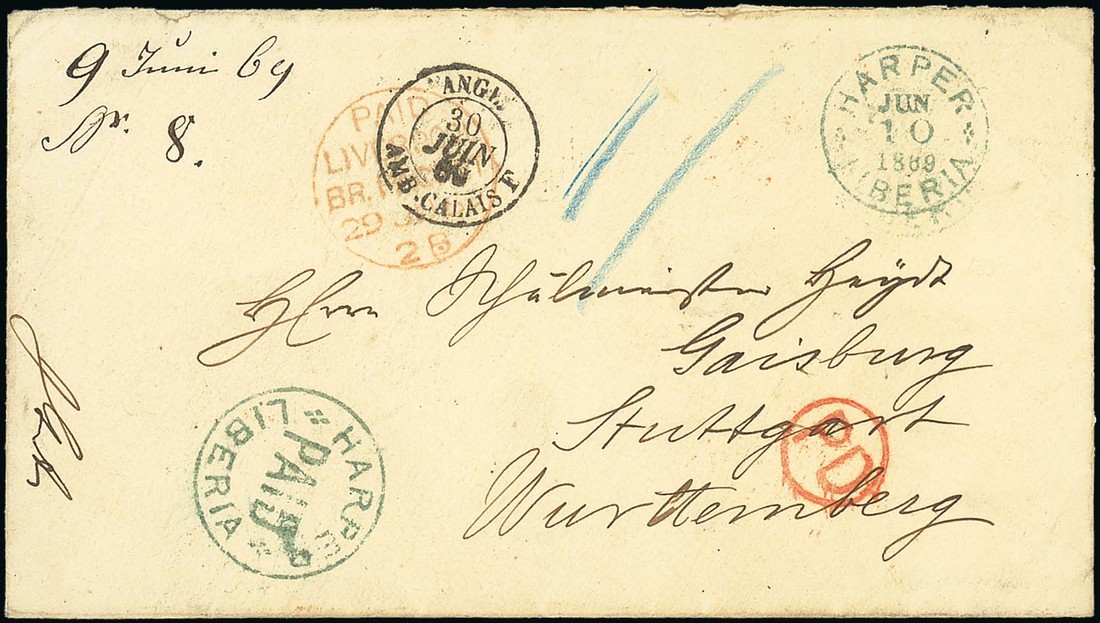 9 Juni 69
Nr. 8.
PAID
LIV
BR.
29 J
2 B
ANGL
30
JUIN
69
AMB. CALAIS F
HARPER
JUN
10
1869
LIBERIA
Herrn Schulmeister Heydt
Gaisburg
Stuttgart
Wurttemberg
PD
HARPER
PAID
LIBERIA